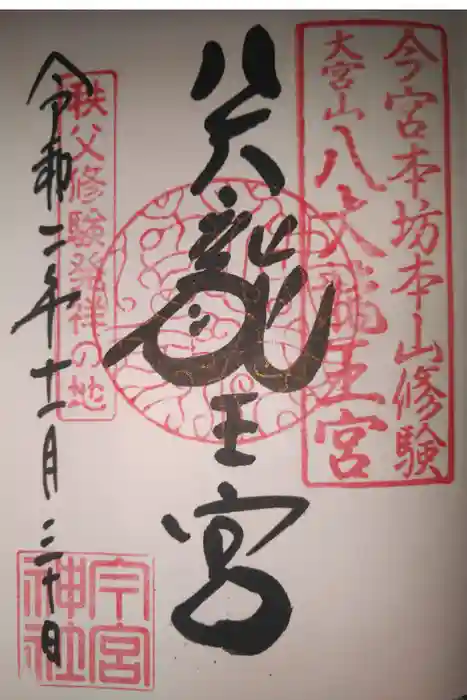 今宮本坊本山修験
大宮山八大龍王宮
八大龍王宮
秩父修験発祥の地
令和二年十二月三十日
今宮神社